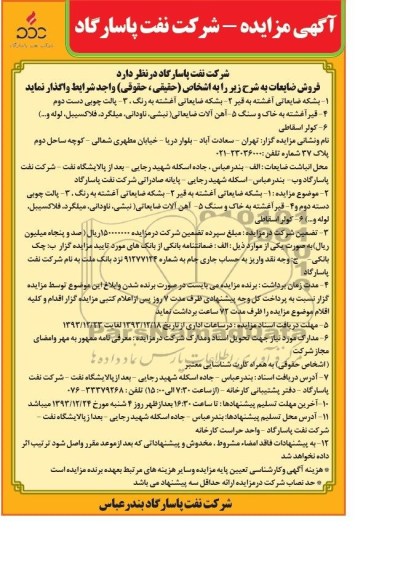 آگهی مزایده - شرکت نفت پاسارگاد
شرکت نفت پاسارگاد در نظر دارد
فروش ضایعات به شرح زیر را به اشخاص (حقیقی ، حقوقی) واجد شرایط واگذار نماید
۱- بشکه ضایعاتی آغشته به قیر ۲- بشکه ضایعاتی آغشته به رنگ ، ۳- پالت چوبی دست دوم
۴- قیر آغشته به خاک و سنگ ۵- آهن آلات ضایعاتی( نبشی، ناودانی، میلگرد، فلاکسیبل، لوله و...)
۶- کولر اسقاطی
نام ونشانی مزایده گزار: تهران - سعادت آباد - بلوار دریا - خیابان مطهری شمالی - کوچه ساحل دوم
پلاک ۳۷ شماره تلفن : ۲۳۰۳۶۰۰۰-۰۲۱
محل انباشت ضایعات : الف- بندرعباس ، جاده اسکله شهید رجایی - بعد از پالایشگاه نفت - شرکت نفت
پاسارگاد وب- بندرعباس - اسکله شهید رجایی - پایانه صادراتی شرکت نفت پاسارگاد
۲- موضوع مزایده : ۱- بشکه ضایعاتی آغشته به قیر ۲- بشکه ضایعاتی آغشته به رنگ ، ۳- پالت چوبی
دسته دوم و۴- قیر آغشته به خاک و سنگ ۵- آهن آلات ضایعاتی( نبشی، ناودانی، میلگرد، فلاکسیبل،
لوله و...) ۶- کولر اسقاطی
۳- تضمین شرکت درمزایده : مبلغ سپرده تضمین شرکت درمزایده ۱۵۰۰۰۰۰۰۰ریال( صد و پنجاه میلیون
ریال) به صورت یکی از موارد ذیل : الف : ضمانتنامه بانکی از بانک های مورد تایید مزایده گزار ب: چک
بانکی - ج: وجه نقد واریز به حساب جاری جام به شماره نزد بانک ملت به نام شرکت نفت
پاسارگاد
۴- مدت زمان برداشت : برنده مزایده می بایست در صورت برنده شدن وابلاغ این موضوع توسط مزایده
گزار نسبت به پرداخت کل وجه پیشنهادی ظرف مدت ۷ روز پس ازاعلام کتبی مزایده گزار اقدام و کلیه
اقلام موضوع مزایده را ظرف مدت ۷۲ ساعت برداشت نماید
۵- مهلت دریافت اسناد مزایده : در ساعات اداری از تاریخ ۱۳۹۳/۱۲/۱۸ لغایت ۱۳۹۳/۱۲/۲۳
۶- مدارک مورد نیاز جهت تحویل اسناد ومدارک شرکت در مزایده : معرفی نامه ممهور به مهر وامضای
مجاز شرکت
(اشخاص حقوقی) به همراه کارت شناسایی معتبر
۷- آدرس دریافت اسناد : بندرعباس - جاده اسکله شهید رجایی - بعد از پالایشگاه نفت - شرکت نفت
پاسارگاد - دفتر پشتیبانی کارخانه - (از ساعت ۷:۳۰ الی ۱۵:۰۰) تلفن: ۳۳۳۷۹۲۶۸-۰۷۶
۱۰- آخرین مهلت تسلیم پیشنهادها : تا ساعت ۱۶:۳۰ بعدازظهر روز ۴ شنبه مورخ ۱۳۹۳/۱۲/۲۴ میباشد
۱۱- آدرس محل تسلیم پیشنهادها: بندرعباس - جاده اسکله شهید رجایی - بعد از پالایشگاه نفت -
شرکت نفت پاسارگاد - واحد حراست کارخانه
۱۲- به پیشنهادات فاقد امضاء مشروط ، مخدوش و پیشنهاداتی که بعد از موعد مقرر واصل شود ترتیب اثر
داده نخواهد شد
* هزینه آگهی وکارشناسی تعیین پایه مزایده وسایر هزینه های مرتبط بعهده برنده مزایده است
* حد نصاب شرکت درمزایده ارائه حداقل سه پیشنهاد می باشد
شرکت نفت پاسارگاد بندرعباس